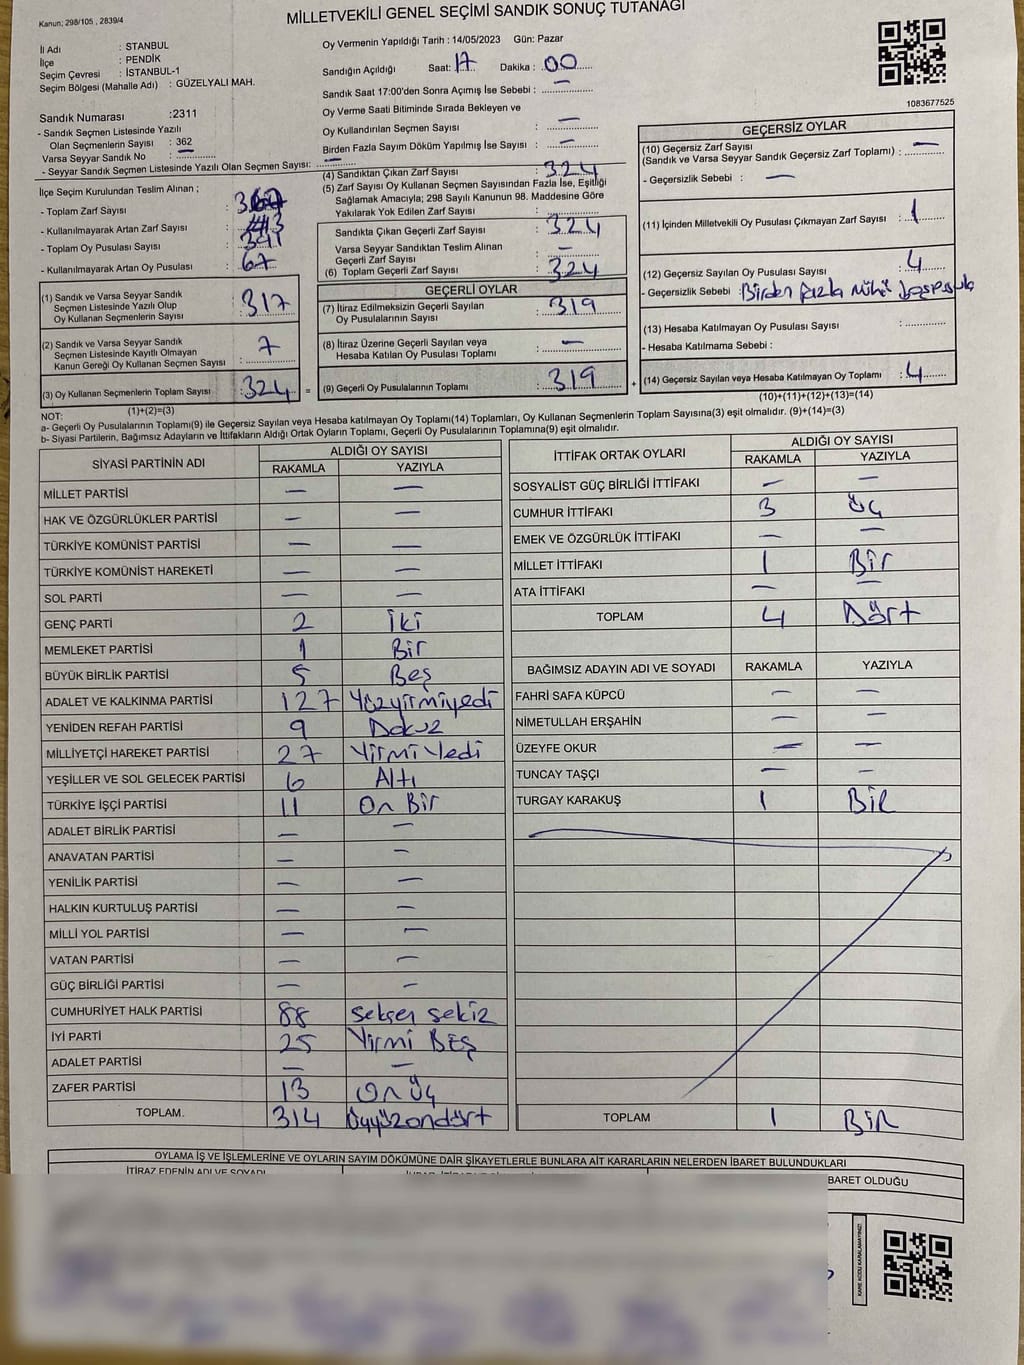 Kanun; 298/105 , 2839/4
MİLLETVEKİLİ GENEL SEÇİMİ SANDIK SONUÇ TUTANAĞI
İl Adı : STANBUL
İlçe : PENDİK
Seçim Çevresi : İSTANBUL-1
Seçim Bölgesi (Mahalle Adı) : GÜZELYALI MAH.
Sandık Numarası :2311
- Sandık Seçmen Listesinde Yazılı
Olan Seçmenlerin Sayısı : 362
Varsa Seyyar Sandık No : —
- Seyyar Sandık Seçmen Listesinde Yazılı Olan Seçmen Sayısı: —
Oy Vermenin Yapıldığı Tarih : 14/05/2023 Gün: Pazar
Sandığın Açıldığı Saat: 17 Dakika : 00
Sandık Saat 17:00'den Sonra Açımış İse Sebebi : —
Oy Verme Saati Bitiminde Sırada Bekleyen ve
Oy Kullandırılan Seçmen Sayısı : —
Birden Fazla Sayım Döküm Yapılmış İse Sayısı : —
1083677525
İlçe Seçim Kurulundan Teslim Alınan ;
- Toplam Zarf Sayısı :
- Kullanılmayarak Artan Zarf Sayısı :
- Toplam Oy Pusulası Sayısı : 391
- Kullanılmayarak Artan Oy Pusulası : 67
(1) Sandık ve Varsa Seyyar Sandık
Seçmen Listesinde Yazılı Olup
Oy Kullanan Seçmenlerin Sayısı : 317
(2) Sandık ve Varsa Seyyar Sandık
Seçmen Listesinde Kayıtlı Olmayan
Kanun Gereği Oy Kullanan Seçmen Sayısı : 7
(3) Oy Kullanan Seçmenlerin Toplam Sayısı : 324
(1)+(2)=(3)
(4) Sandıktan Çıkan Zarf Sayısı : 324
(5) Zarf Sayısı Oy Kullanan Seçmen Sayısından Fazla İse, Eşitliği
Sağlamak Amacıyla; 298 Sayılı Kanunun 98. Maddesine Göre
Yakılarak Yok Edilen Zarf Sayısı :
Sandıkta Çıkan Geçerli Zarf Sayısı : 324
Varsa Seyyar Sandıktan Teslim Alınan
Geçerli Zarf Sayısı : —
(6) Toplam Geçerli Zarf Sayısı : 324
GEÇERLİ OYLAR
(7) İtiraz Edilmeksizin Geçerli Sayılan
Oy Pusulalarının Sayısı : 319
(8) İtiraz Üzerine Geçerli Sayılan veya
Hesaba Katılan Oy Pusulası Toplamı : —
= (9) Geçerli Oy Pusulalarının Toplamı : 319 +
GEÇERSİZ OYLAR
(10) Geçersiz Zarf Sayısı
(Sandık ve Varsa Seyyar Sandık Geçersiz Zarf Toplamı) : —
- Geçersizlik Sebebi : —
(11) İçinden Milletvekili Oy Pusulası Çıkmayan Zarf Sayısı : 1
(12) Geçersiz Sayılan Oy Pusulası Sayısı : 4
- Geçersizlik Sebebi : Birden fazla mühür
(13) Hesaba Katılmayan Oy Pusulası Sayısı :
- Hesaba Katılmama Sebebi :
(14) Geçersiz Sayılan veya Hesaba Katılmayan Oy Toplamı : 4
(10)+(11)+(12)+(13)=(14)
NOT:
a- Geçerli Oy Pusulalarının Toplamı(9) ile Geçersiz Sayılan veya Hesaba katılmayan Oy Toplamı(14) Toplamları, Oy Kullanan Seçmenlerin Toplam Sayısına(3) eşit olmalıdır. (9)+(14)=(3)
b- Siyasi Partilerin, Bağımsız Adayların ve İttifakların Aldığı Ortak Oyların Toplamı, Geçerli Oy Pusulalarının Toplamına(9) eşit olmalıdır.
SİYASİ PARTİNİN ADI ALDIĞI OY SAYISI
RAKAMLA YAZIYLA
MİLLET PARTİSİ — —
HAK VE ÖZGÜRLÜKLER PARTİSİ — —
TÜRKİYE KOMÜNİST PARTİSİ — —
TÜRKİYE KOMÜNİST HAREKETİ — —
SOL PARTİ — —
GENÇ PARTİ 2 İki
MEMLEKET PARTİSİ 1 Bir
BÜYÜK BİRLİK PARTİSİ 5 Beş
ADALET VE KALKINMA PARTİSİ 127 Yüzyirmiyedi
YENİDEN REFAH PARTİSİ 9 Dokuz
MİLLİYETÇİ HAREKET PARTİSİ 27 Yirmi Yedi
YEŞİLLER VE SOL GELECEK PARTİSİ 6 Altı
TÜRKİYE İŞÇİ PARTİSİ 11 On Bir
ADALET BİRLİK PARTİSİ — —
ANAVATAN PARTİSİ — —
YENİLİK PARTİSİ — —
HALKIN KURTULUŞ PARTİSİ — —
MİLLİ YOL PARTİSİ — —
VATAN PARTİSİ — —
GÜÇ BİRLİĞİ PARTİSİ — —
CUMHURİYET HALK PARTİSİ 88 Seksen sekiz
İYİ PARTİ 25 Yirmi BEŞ
ADALET PARTİSİ — —
ZAFER PARTİSİ 13 On Üç
TOPLAM. 314 Üçyüzondört
İTTİFAK ORTAK OYLARI ALDIĞI OY SAYISI
RAKAMLA YAZIYLA
SOSYALİST GÜÇ BİRLİĞİ İTTİFAKI — —
CUMHUR İTTİFAKI 3 Üç
EMEK VE ÖZGÜRLÜK İTTİFAKI — —
MİLLET İTTİFAKI 1 Bir
ATA İTTİFAKI — —
TOPLAM 4 Dört
BAĞIMSIZ ADAYIN ADI VE SOYADI RAKAMLA YAZIYLA
FAHRİ SAFA KÜPCÜ — —
NİMETULLAH ERŞAHİN — —
ÜZEYFE OKUR — —
TUNCAY TAŞÇI — —
TURGAY KARAKUŞ 1 BİR
TOPLAM 1 BİR
OYLAMA İŞ VE İŞLEMLERİNE VE OYLARIN SAYIM DÖKÜMÜNE DAİR ŞİKAYETLERLE BUNLARA AİT KARARLARIN NELERDEN İBARET BULUNDUKLARI
İTİRAZ EDENİN ADI VE SOYADI
BARET OLDUĞU
KARE KODU KARALAMAYINIZ!